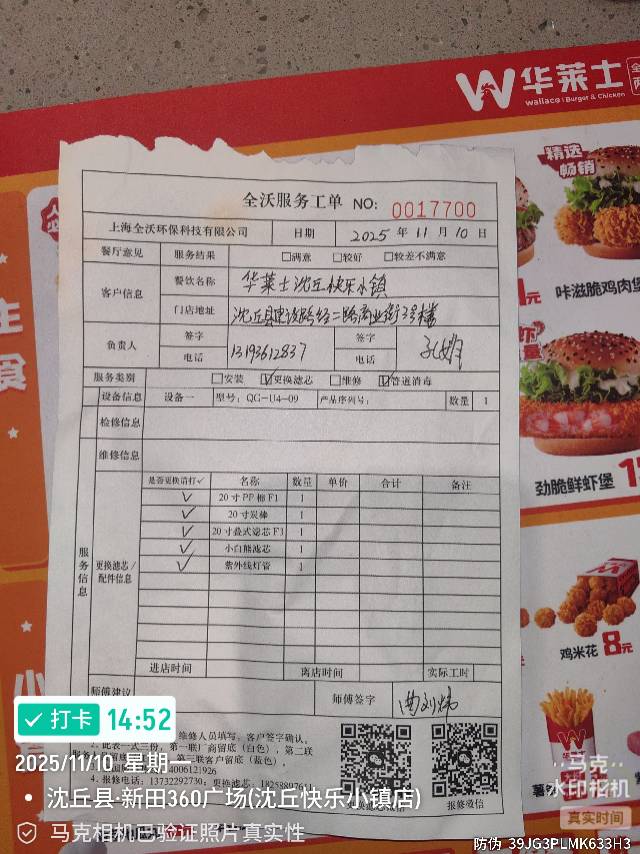 华莱士
wallace | Burger & Chicken
精选
畅销
咔滋脆鸡肉堡
劲脆鲜虾堡
鸡米花 8元
全沃服务工单 NO: 0017700
上海全沃环保科技有限公司 日期 2025 年 11 月 10 日
餐厅意见 服务结果 □满意 □较好 □较差不满意
客户信息 餐饮名称 华莱士沈丘快乐小镇
门店地址 沈丘县建设路经二路商业街3号楼
负责人 签字 签字
电话 13193612837 电话
服务类别 □安装 ☑更换滤芯 □维修 ☑管道消毒
设备信息 设备一 型号: QG-U4-09 产品序列号: 数量 1
检修信息
维修信息
服务信息 更换滤芯/配件信息
是否更换请打✓ 名称 数量 单价 合计 备注
✓ 20寸PP棉F1 1
✓ 20寸炭棒 1
✓ 20寸叠式滤芯F1 1
✓ 小白熊滤芯 1
✓ 紫外线灯管 1
进店时间 离店时间 实际工时
师傅建议 师傅签字
维修人员填写，客户签字确认。
2、此表一式三份，第一联厂商留底（白色），第二联
第三联客户留底（蓝色）。
4006121926
4、报修电话：13732292730;更换滤芯、
报修微信
打卡 14:52
2025/11/10 星期一
沈丘县·新田360广场(沈丘快乐小镇店)
马克相机已验证照片真实性
马克
水印相机
真实时间
防伪 39JG3PLMK633H3